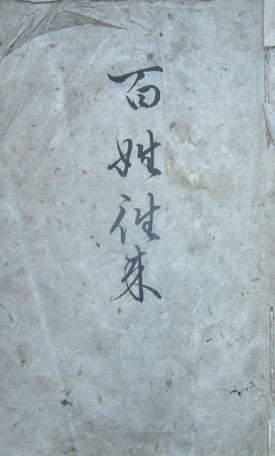 百姓往来